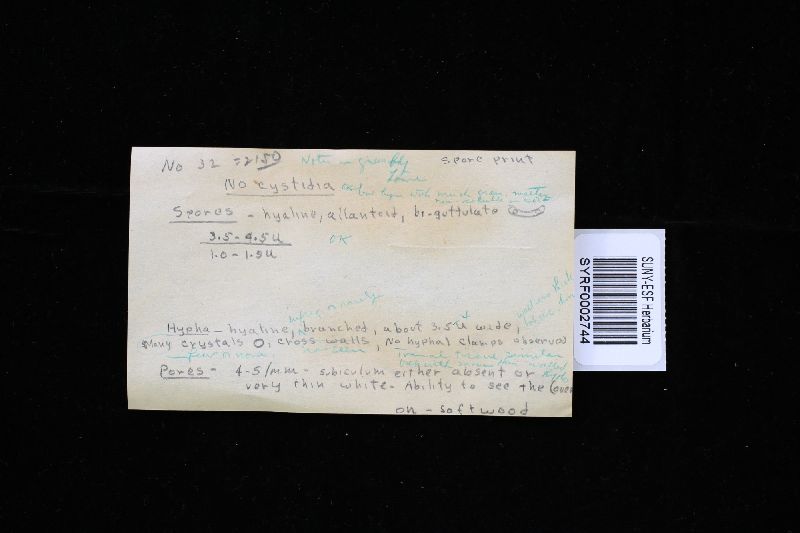 No 32 = 2150 Notes in green by Lowe spore print
No cystidia
Spores - hyaline, allantoid, bi-guttulate
3.5-4.5u OK
1.0-1.5u
Hypha - hyaline, branched, about 3.5u wide,
Many crystals O; cross walls, No hyphal clamps observed
few or none no seen
Pores - 4-5/mm - subiculum either absent or
very thin white. Ability to see the (over
on - softwood
SUNY-ESF Herbarium
SYRF0002744